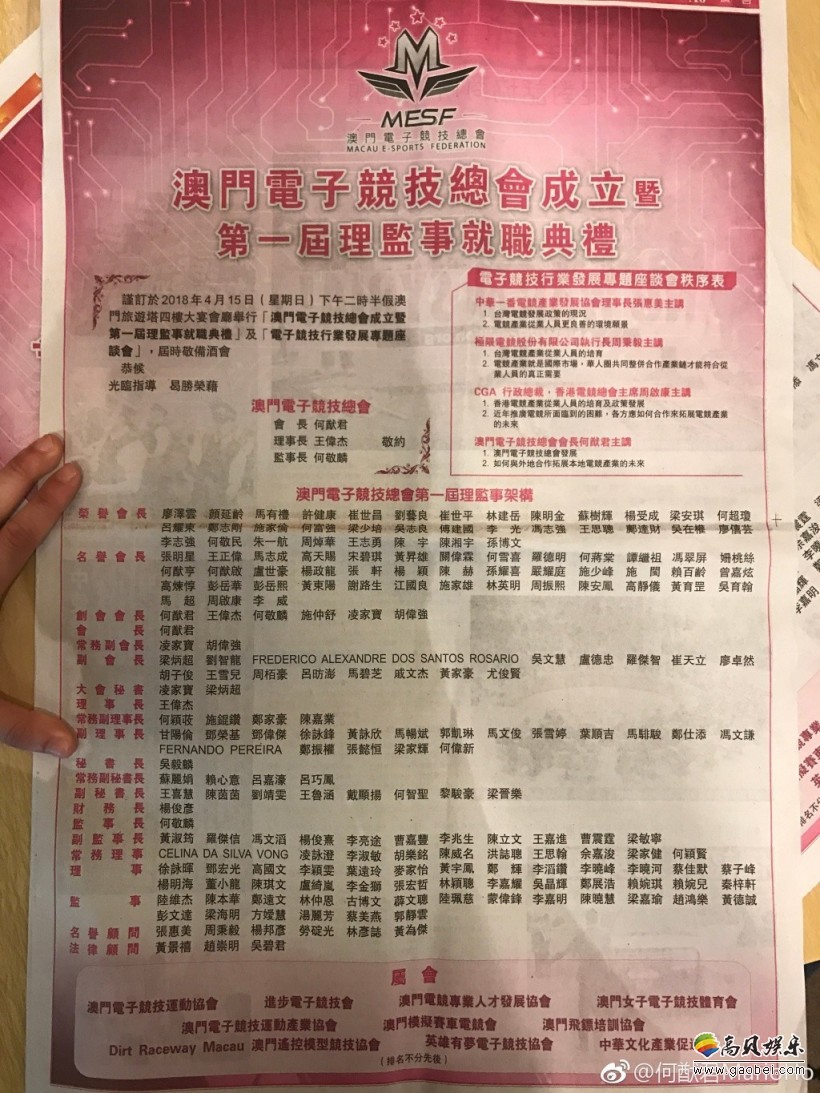 MESF
澳門電子競技總會
MACAU E-SPORTS FEDERATION
澳門電子競技總會成立暨
第一屆理監事就職典禮
謹訂於2018年4月15日（星期日）下午二時半假澳
門旅遊塔四樓大宴會廳舉行「澳門電子競技總會成立暨
第一屆理監事就職典禮」及「電子競技行業發展專題座
談會」，屆時敬備酒會
恭候
光臨指導 曷勝榮藉
澳門電子競技總會
會 長 何猷君
理事長 王偉杰 敬約
監事長 何敬麟
電子競技行業發展專題座談會秩序表
中華一番電競產業發展協會理事長張惠美主講
1. 台灣電競發展政策的現況
2. 電競產業從業人員更良善的環境願量
極限電競股份有限公司執行長周秉毅主講
1. 台灣電競產業從業人員的培育
2. 電競產業就是國際市場，華人圈共同整併合作產業鏈才能符合從
業人員的真正需要
CGA 行政總裁，香港電競總會主席周啟康主講
1. 香港電競產業從業人員的培育及政策發展
2. 近年推廣電競所面臨到的困難，各方應如何合作來拓展電競產業
的未來
澳門電子競技總會會長何猷君主講
1. 澳門電子競技總會發展
2. 如何與外地合作拓展本地電競產業的未來
澳門電子競技總會第一屆理監事架構
榮譽會長 廖澤雲 顏延齡 馬有禮 許健康 崔世昌 劉藝良 崔世平 林建岳 陳明金 蘇樹輝 楊受成 梁安琪 何超瓊
呂耀東 鄭志剛 施家倫 何富強 梁少培 吳志良 傅建國 李光 馮志強 王思聰 鄭達財 吳在權 廖僖芸
李志強 何敬民 朱一航 周焯華 王志勇 陳宇 陳湘宇 孫博文
名譽會長 張明星 王正偉 馬志成 高天賜 宋碧琪 黃昇雄 關偉霖 何雪喜 羅德明 何蔣棠 譚繼祖 馮翠屏 姍桃絲
何猷亨 何猷啟 盧世豪 楊政龍 張軒 楊穎 陳赫 孫耀喜 嚴耀庭 施少峰 施閩 賴百齡 曾嘉炫
高煉惇 彭岳華 彭岳熙 黃東陽 謝路生 江國良 施家雄 林英明 周振熙 陳安鳳 高靜儀 黃育罡 吳育翰
馬超 周啟康 李威
創會會長 何猷君 王偉杰 何敬麟 施仲舒 凌家寶 胡偉強
會長 何猷君
常務副會長 凌家寶 胡偉強
副會長 梁炳超 劉智龍 FREDERICO ALEXANDRE DOS SANTOS ROSARIO 吳文慧 盧德忠 羅傑智 崔天立 廖卓然
胡子俊 王雪兒 周栢豪 呂昉澎 馬碧芝 戚文杰 黃家豪 尤俊賢
大會秘書 凌家寶 梁炳超
理事長 王偉杰
常務副理事長 何穎莜 施錕鑽 鄭家豪 陳嘉業
副理事長 甘陽倫 鄧榮基 鄧偉傑 徐詠鋒 黃詠欣 馬暢斌 郭凱琳 馬文俊 張雪婷 葉順吉 馬騑駿 鄭仕添 馮文謙
FERNANDO PEREIRA 鄭振權 張懿恒 梁家輝 何偉新
秘書長 吳毅麟
常務副秘書長 蘇麗娟 賴心意 呂嘉濠 呂巧鳳
副秘書長 王喜慧 陳茵茵 劉靖雯 王魯涵 戴顯揚 何智聖 黎駿豪 梁晉樂
財務長 楊俊彥
監事長 何敬麟
副監事長 黃淑筠 羅傑信 馮文滔 楊俊熹 李亮途 曹嘉豐 李兆生 陳立文 王嘉進 曹震霆 梁敏寧
常務理事 CELINA DA SILVA VONG 凌詠澄 李淑敏 胡樂銘 陳威名 洪誌聰 王思翰 佘嘉浚 梁家健 何穎賢
理事 徐詠暉 鄧宏光 高國文 李穎雯 葉遠玲 麥家怡 黃宇鳳 鄭輝 李滔鑽 李曉峰 李曉河 蔡佳默 蔡子峰
楊明海 董小龍 陳琪文 盧綺嵐 李金獅 張宏哲 林穎聰 李嘉耀 吳晶輝 鄭展浩 賴婉琪 賴婉兒 秦梓軒
監事 陸維杰 陳本華 鄭遠文 林仲恩 古博文 薛文聰 陸珮慈 蒙偉鋒 李嘉明 陳曉慧 梁嘉瑜 趙鴻樂 黃德誠
彭文達 梁海明 方嬡慧 湯麗芳 蔡美燕 郭靜雲
名譽顧問 張惠美 周秉毅 楊邦彥 勞碇光 林彥誌 黃為傑
法律顧問 黃景禧 趙崇明 吳碧君
屬會
澳門電子競技運動協會 進步電子競技會 澳門電競專業人才發展協會 澳門女子電子競技體育會
澳門電子競技運動產業協會 澳門模擬賽車電競會 澳門飛鏢培訓協會
Dirt Raceway Macau 澳門遙控模型競技協會 英雄有夢電子競技協會 中華文化產業促進
（排名不分先後）
高贝娱乐
www.gaobei.com
@何猷君MarioHo